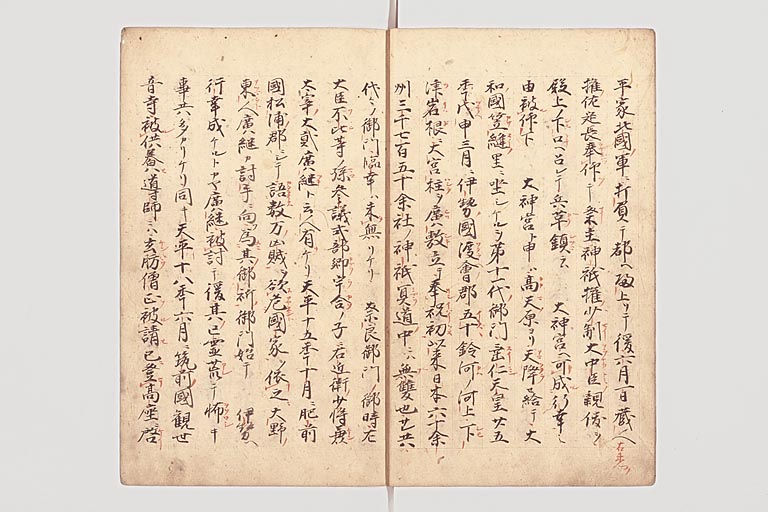 平家北國軍ニ打負テ都ヘ逃上リテ後六月一日蔵人右
推佐定長奉仰テ祭主神祇権少副大中臣親俊ヲ
殿上下口ニ召シテ兵革鎮ラハ大神宮ヘ可成行幸之
由被仰下 大神宮ト申ハ高天原ヨリ天降ラ給テ大
和國笠縫里ニ坐シケルヲ第十一代御門垂仁天皇廿五
年戊申三月ニ伊勢國渡會郡五十鈴河ノ河上下
津岩根ニ大宮柱ヲ廣敷立テ奉祝初以来日本六十余
州三千七百五十余社ノ神祇冥道中ニハ無雙也サ共ハ
代々ノ御門臨幸ハ未無リケリ 奈良御門ノ御時左
大臣不比等ノ孫参議式部卿宇合ノ子右近衛少将兼
太宰大貳廣継ト云人有ケリ天平十五年十月ニ肥前
國松浦郡ニシテ語数万凶賊ヲ欲危國家ヲ依之大野
東人廣継カ討手ニ向フ為其御祈御門始テ 伊勢ヘ
行幸成ケルトカヤ廣継被討テ後其亡霊荒テ怖キ
事共多カリケリ同キ天平十八年六月ニ筑前國観世
音寺被供養ハ導師ニハ玄肪僧正被請已登高座啓